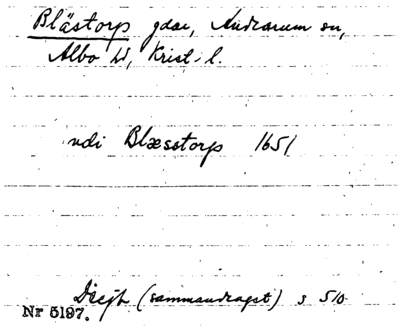 Blästorp gdar, Andrarum sn,
Albo hd, Krist. l.
udi Blæsstorp 1651
Dsejb (sammandraget) s 510
Nr 5197.